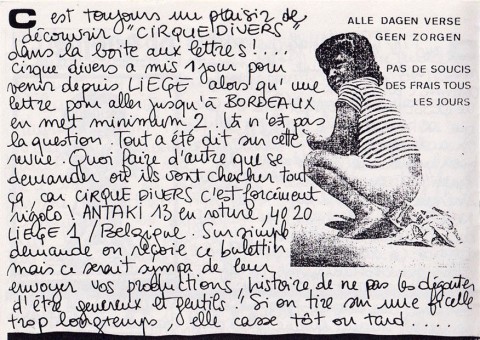 C'est toujours un plaisir de
découvrir "CIRQUE DIVERS"
dans la boite aux lettres !....
Cirque divers a mis 1 jour pour
venir depuis LIEGE alors qu'une
lettre pour aller jusqu'à BORDEAUX
en met minimum 2. Là n'est pas
la question. Tout a été dit sur cette
revue. Quoi faire d'autre que se
demander où ils vont chercher tout
ça, car CIRQUE DIVERS c'est forcément
rigolo ! ANTAKI 13 en roture, 4020
LIEGE 1 / Belgique. Sur simple
demande on reçoie ce bulettin
mais ce serait sympa de leur
envoyer vos productions, histoire de ne pas les dégouter
d'être genereux et gentils. "Si on tire sur une ficelle
trop longtemps, elle casse tôt ou tard.....
ALLE DAGEN VERSE
GEEN ZORGEN
PAS DE SOUCIS
DES FRAIS TOUS
LES JOURS